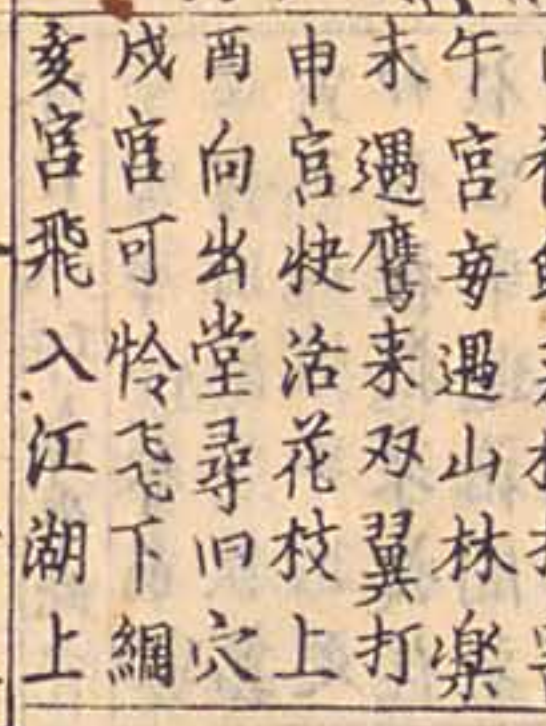 午宮每遇山林楽
未遇鷹来双翼打
申宮快活花枝上
酉向出堂尋旧穴
戌宮可怜飞下網
亥宮飛入江湖上